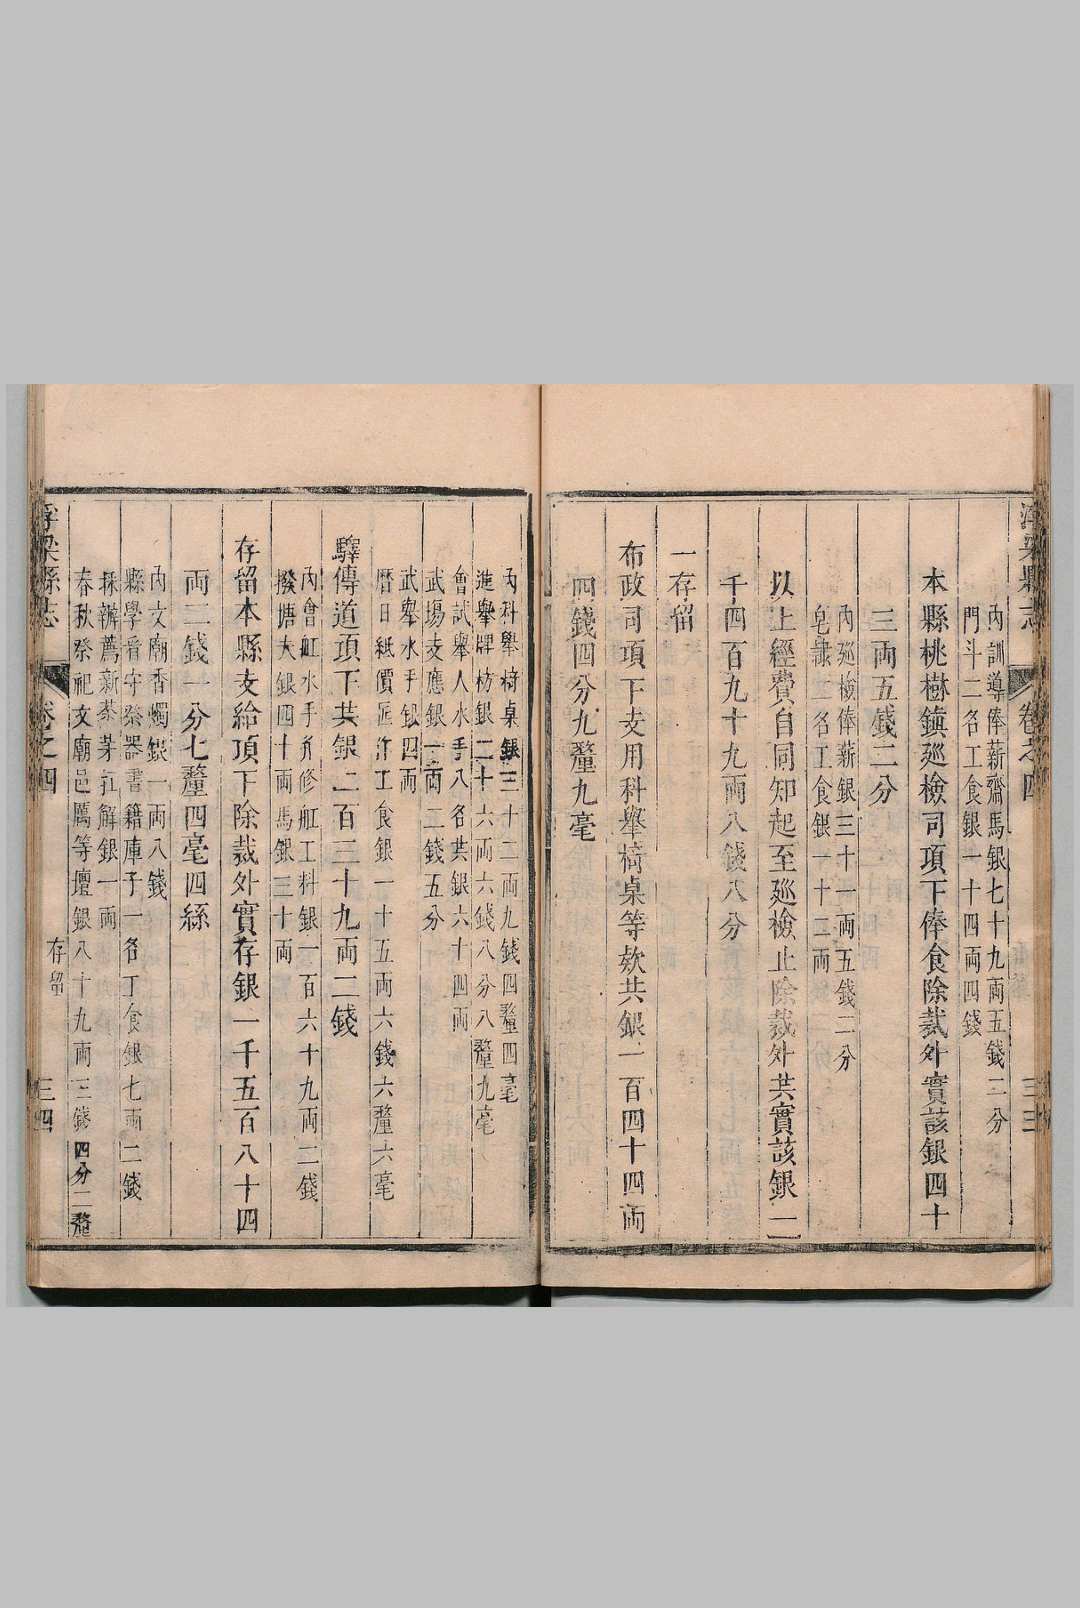 浮梁縣志 卷之四 三三
內訓導俸薪齋馬銀七十九兩五錢二分
門斗二名工食銀一十四兩四錢
本縣桃樹鎮廵檢司項下俸食除裁外實該銀四十
三兩五錢二分
內廵檢俸薪銀三十一兩五錢二分
皂隸二名工食銀一十二兩
以上經費自同知起至廵檢止除裁外共實該銀一
千四百九十九兩八錢八分
一存留
布政司項下支用科舉椅桌等欵共銀一百四十四兩
四錢四分九釐九毫
內科舉椅桌銀三十二兩九錢四釐四毫
進舉牌枋銀二十六兩六錢八分八釐九毫
會試舉人水手八名共銀六十四兩
武塲支應銀一兩二錢五分
武舉水手銀四兩
曆日紙價匠作工食銀一十五兩六錢六釐六毫
驛傳道項下共銀二百三十九兩二錢
內會舡水手并修舡工料銀一百六十九兩二錢
撥塘夫銀四十兩馬銀三十兩
存留本縣支給項下除裁外實存銀一千五百八十四
兩二錢一分七釐四毫四絲
內文廟香燭銀一兩八錢
縣學看守祭器書籍庫子一名工食銀七兩二錢
採辦薦新茶芽 解銀一兩
春秋祭祀文廟邑厲等壇銀八十九兩三錢四分二釐
浮梁縣志 卷之四 存留 三四